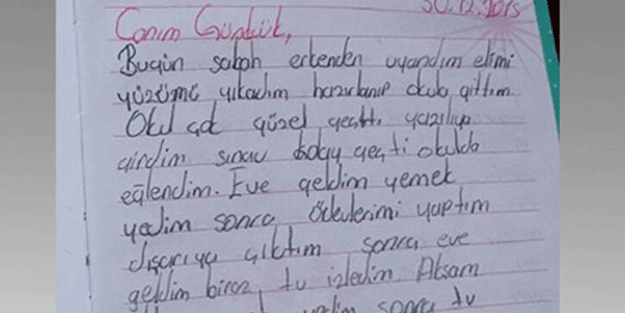 30.12.2015
Canım Günlük,
Bugün sabah erkenden uyandım elimi
yüzümü yıkadım hazırlanıp okula gittim.
Okul çok güzel geçti yazılıya
girdim sınav kolay geçti okulda
eğlendim. Eve geldim yemek
yedim sonra ödevlerimi yaptım
dışarıya çıktım sonra eve
geldim biraz tv izledim. Akşam
sonra tv